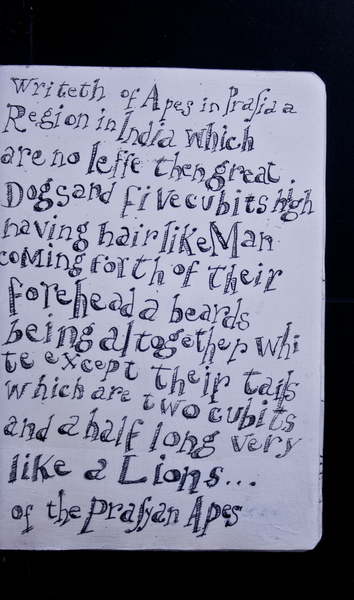 Writeth of Apes in Praſia a
Region in India which
are no leſſe then great
Dogs and five cubits high
having hair like Man
coming forth of their
forehead a beards
being altogether whi
te except their tails
which are two cubits
and a half long very
like a Lions...
of the Praſyan Apes